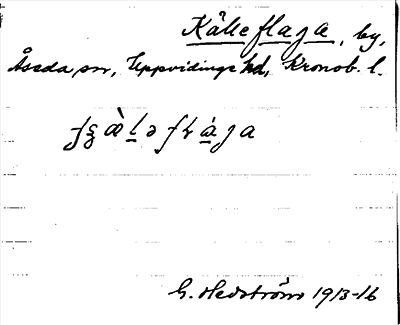 Källeflaga, by,
Åseda sn, Uppvidinge hd, Kronob. l.
G. Hedström 1913-16